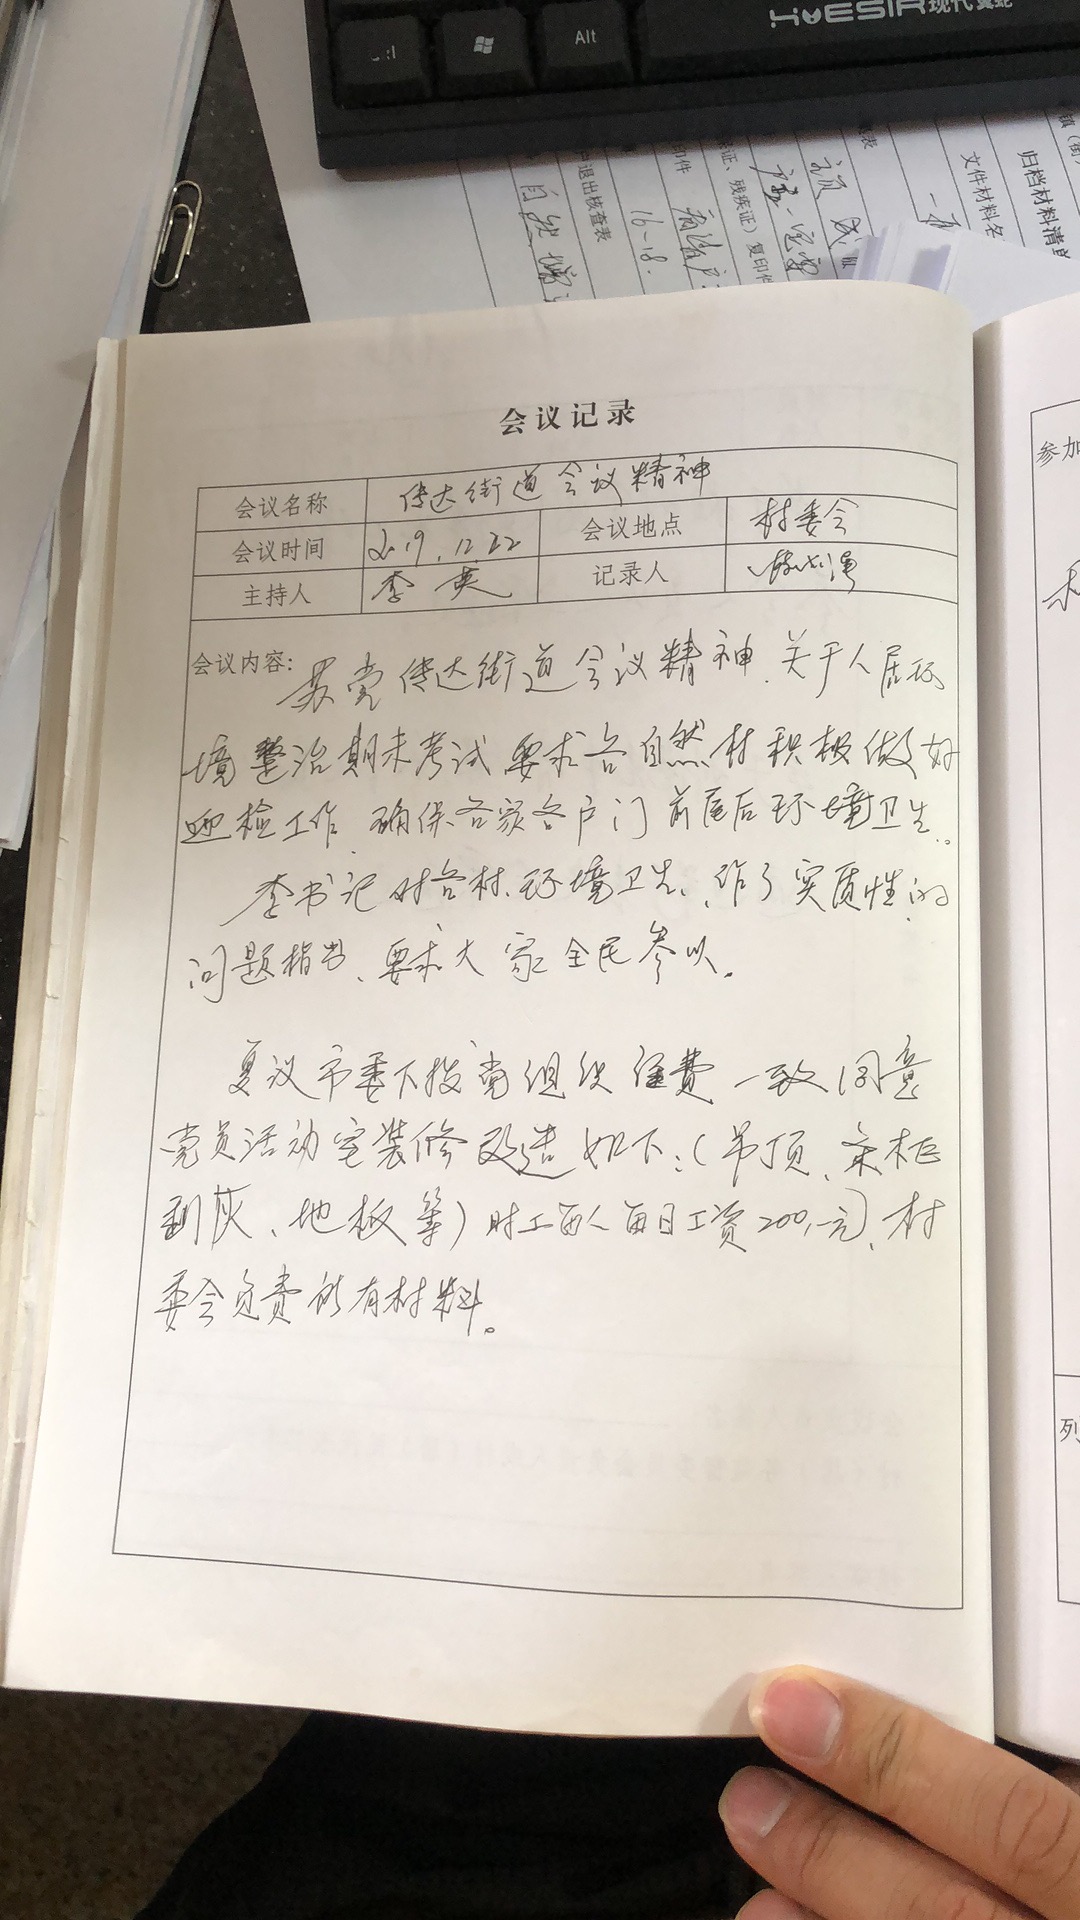 Alt
HYESIR现代
归档材料清单
文件材料名
残疾证）复印件
印件
16-18.
退出核查表
自然增
会议记录
会议名称 传达街道会议精神
会议时间 2019.12.22 会议地点 村委会
主持人 李英 记录人
会议内容: 苏党传达街道会议精神.关于人居环
境整治期末考试要求各自然村积极做好
迎检工作.确保各家各户门前屋后环境卫生.
李书记对各村、环境卫生、作了实质性的
问题指出、要求大家全民参以。
复议市委下拨党组织经费一致同意
党员活动室装修改造如下:(吊顶、
刮灰、地板等)时工每人每日工资200.元)、村
委会负责所有材料。
参加
列